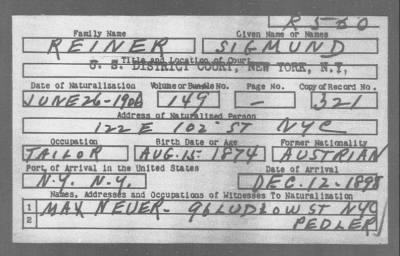 R 560
Family Name Given Name or Names
REINER SIGMUND
Title and Location of Court
U. S. DISTRICT COURT, NEW YORK, N.Y.
Date of Naturalization Volume or Bundle No. Page No. Copy of Record No.
JUNE 26-1906 149 - 321
Address of Naturalized Person
122 E 102 ST NYC
Occupation Birth Date or Age Former Nationality
TAILOR AUG. 15 1874 AUSTRIAN
Port of Arrival in the United States Date of Arrival
N.Y. N.Y. DEC. 12-1898
Names, Addresses and Occupations of Witnesses To Naturalization
1 MAX NEUER- 96 LUDLOW ST NYC
2 PEDLER